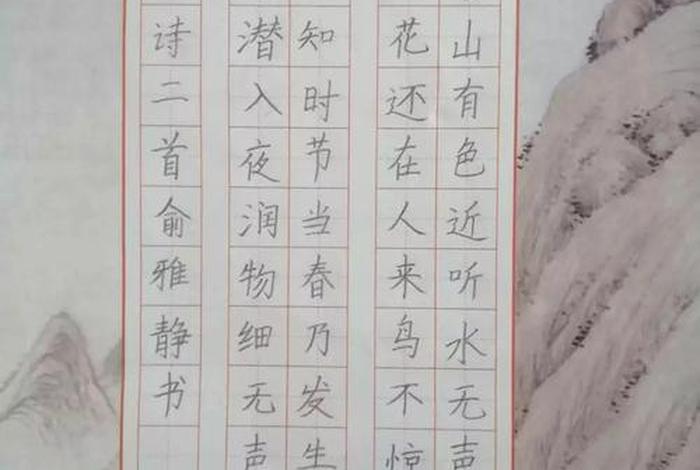 山有色近听水无声
花还在人来鸟不惊
知时节当春乃发生
潜入夜润物细无声
诗二首俞雅静书